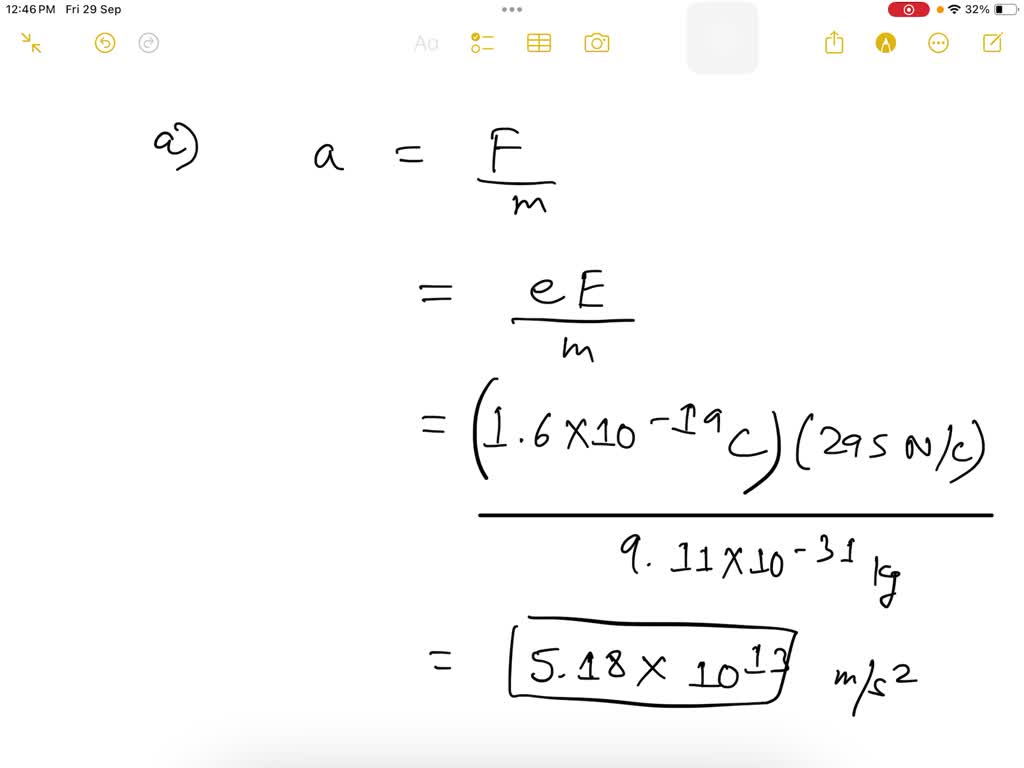 12:46 PM Fri 29 Sep 32%
Aa
a) a = F / m
= eE / m
= (1.6 × 10^-19 C) (295 N/C) / 9.11 × 10^-31 kg
= 5.18 × 10^13 m/s^2